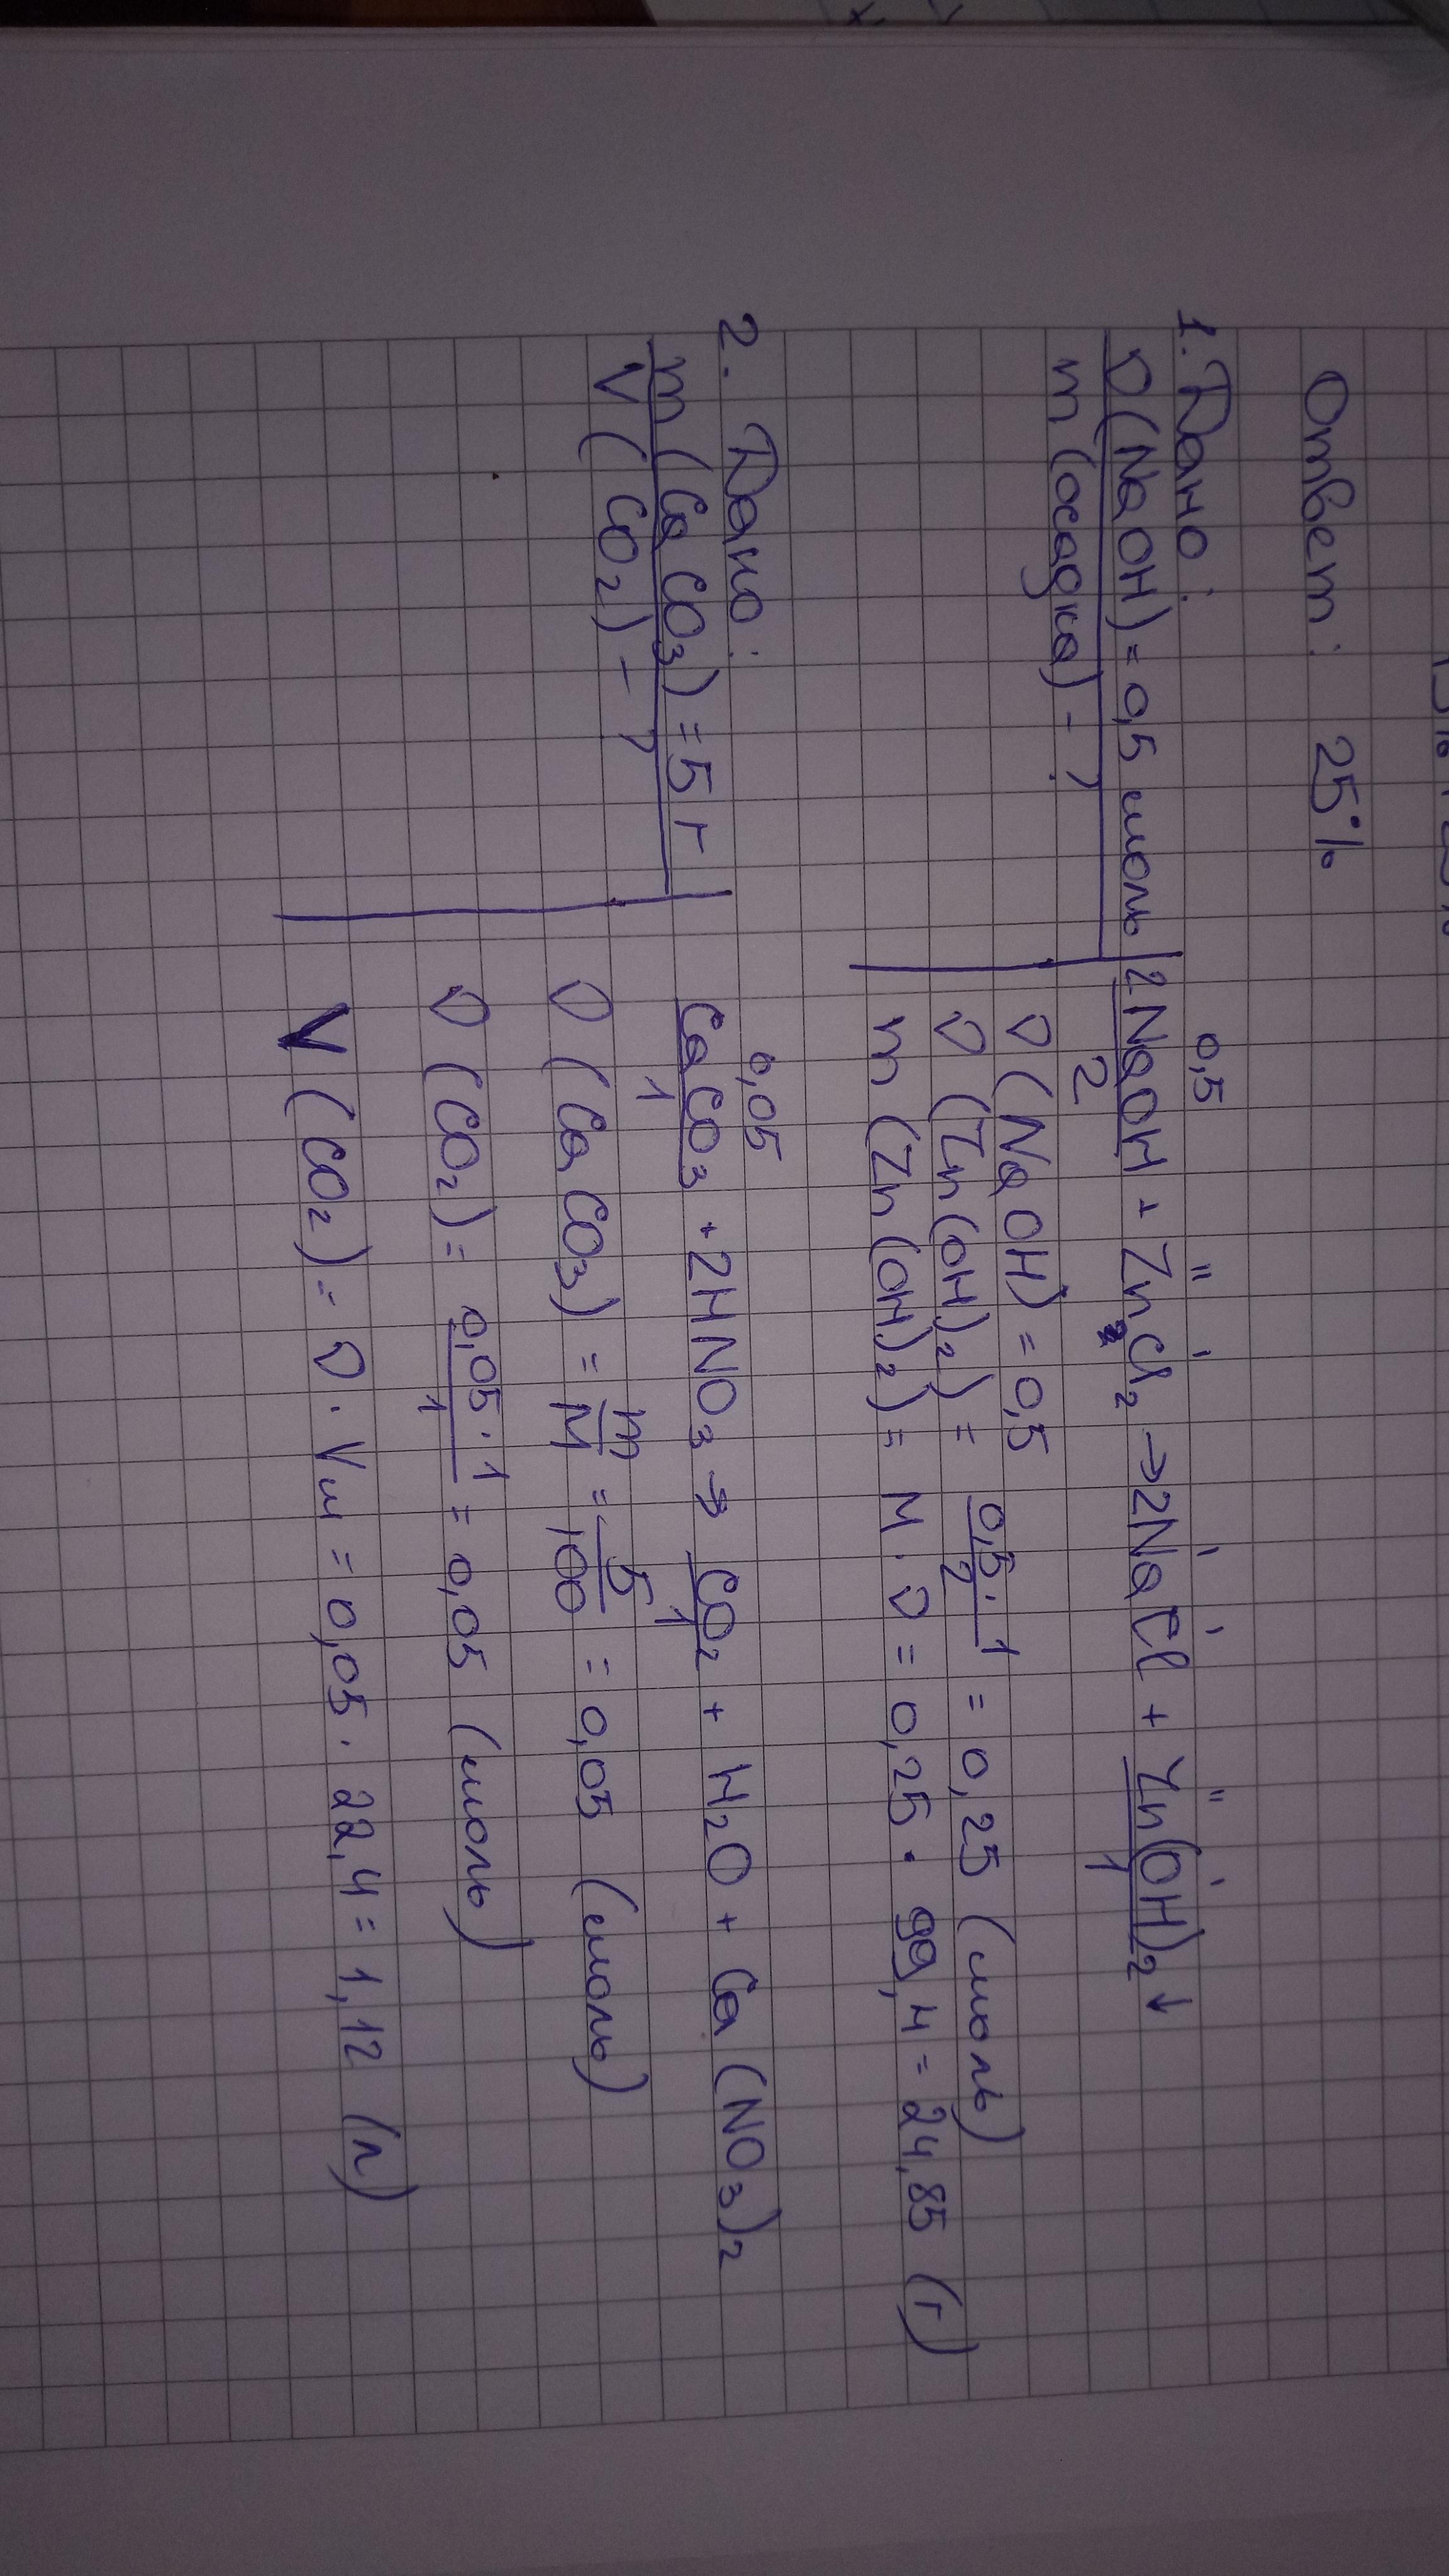 Ответ: 25%
1. Дано:
ν(NaOH) = 0,5 моль
m(осадка) - ?
0,5
2NaOH + ZnCl₂ → 2NaCl + Zn(OH)₂↓
2 1
ν(NaOH) = 0,5
ν(Zn(OH)₂) = 0,5·1/2 = 0,25 (моль)
m(Zn(OH)₂) = M·ν = 0,25 · 99,4 = 24,85 (г)
2. Дано:
m(CaCO₃) = 5 г
V(CO₂) - ?
0,05
CaCO₃ + 2HNO₃ → CO₂ + H₂O + Ca(NO₃)₂
1 1
ν(CaCO₃) = m/M = 5/100 = 0,05 (моль)
ν(CO₂) = 0,05·1/1 = 0,05 (моль)
V(CO₂) = ν·Vм = 0,05 · 22,4 = 1,12 (л)